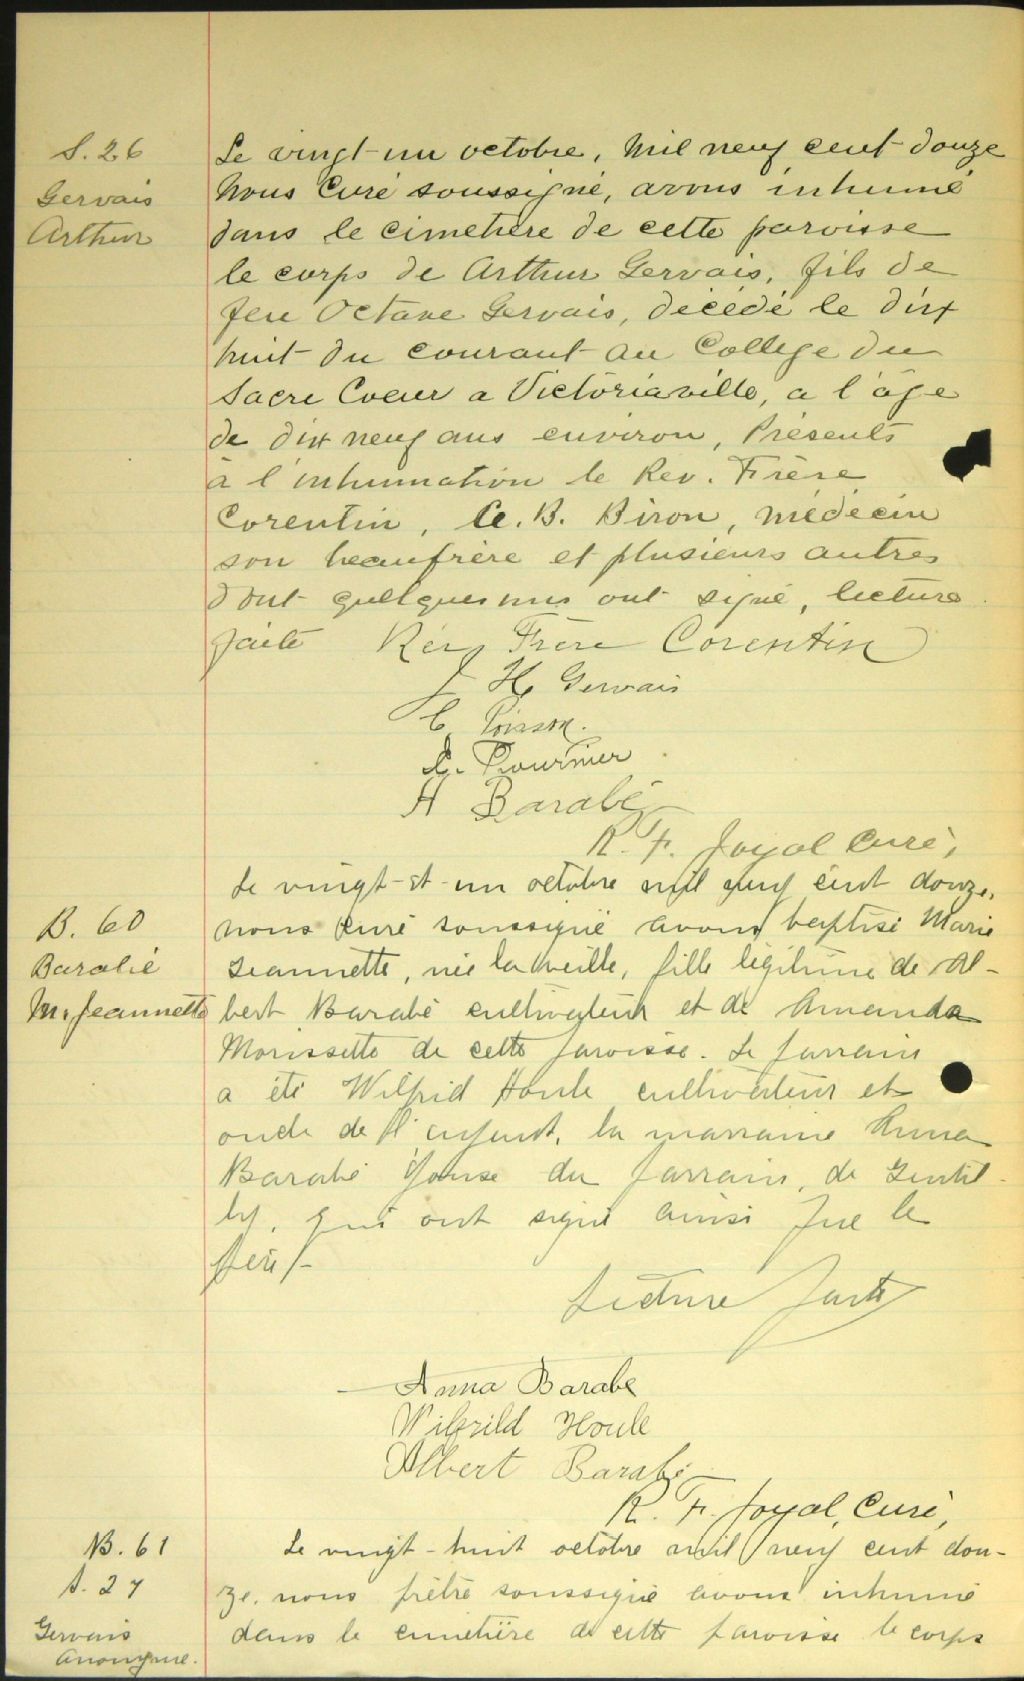 S. 26
Gervais
Arthur
Le vingt-un octobre, mil neuf cent douze
Nous Curé soussigné, avons inhumé
dans le cimetière de cette paroisse
le corps de Arthur Gervais, fils de
feu Octave Gervais, décédé le dix
huit du courant au College du
Sacre Coeur a Victoriaville, a l'âge
de dix neuf ans environ, Présents
à l'inhumation le Rev. Frère
Corentin, B. Biron, médecin
son beaufrère et plusieurs autres
dont quelques uns ont signé, lecture
faite Rév Frère Corentin
J H Gervais
C Poisson.
Fournier
H Barabé
R. F. Joyal Curé,
B. 60
Barabé
M. Jeannette
Le vingt-et-un octobre mil neuf cent douze,
nous curé soussigné avons baptisé Marie
Jeannette, née la veille, fille légitime de Al-
bert Barabé cultivateur et de Amanda
Morissette de cette paroisse. Le parrain
a été Wilfrid Houle cultivateur et
oncle de l'enfant, la marraine Anna
Barabé épouse du parrain, de Gentil-
ly, qui ont signé ainsi que le
père/-
Lecture faite
Anna Barabe
Wilfrild Houle
Albert Barabé
R. F. Joyal, Curé,
B. 61
S. 27
Gervais
Anonyme.
Le vingt-huit octobre mil neuf cent dou-
ze, nous prêtre soussigné avons inhumé
dans le cimetière de cette paroisse le corps